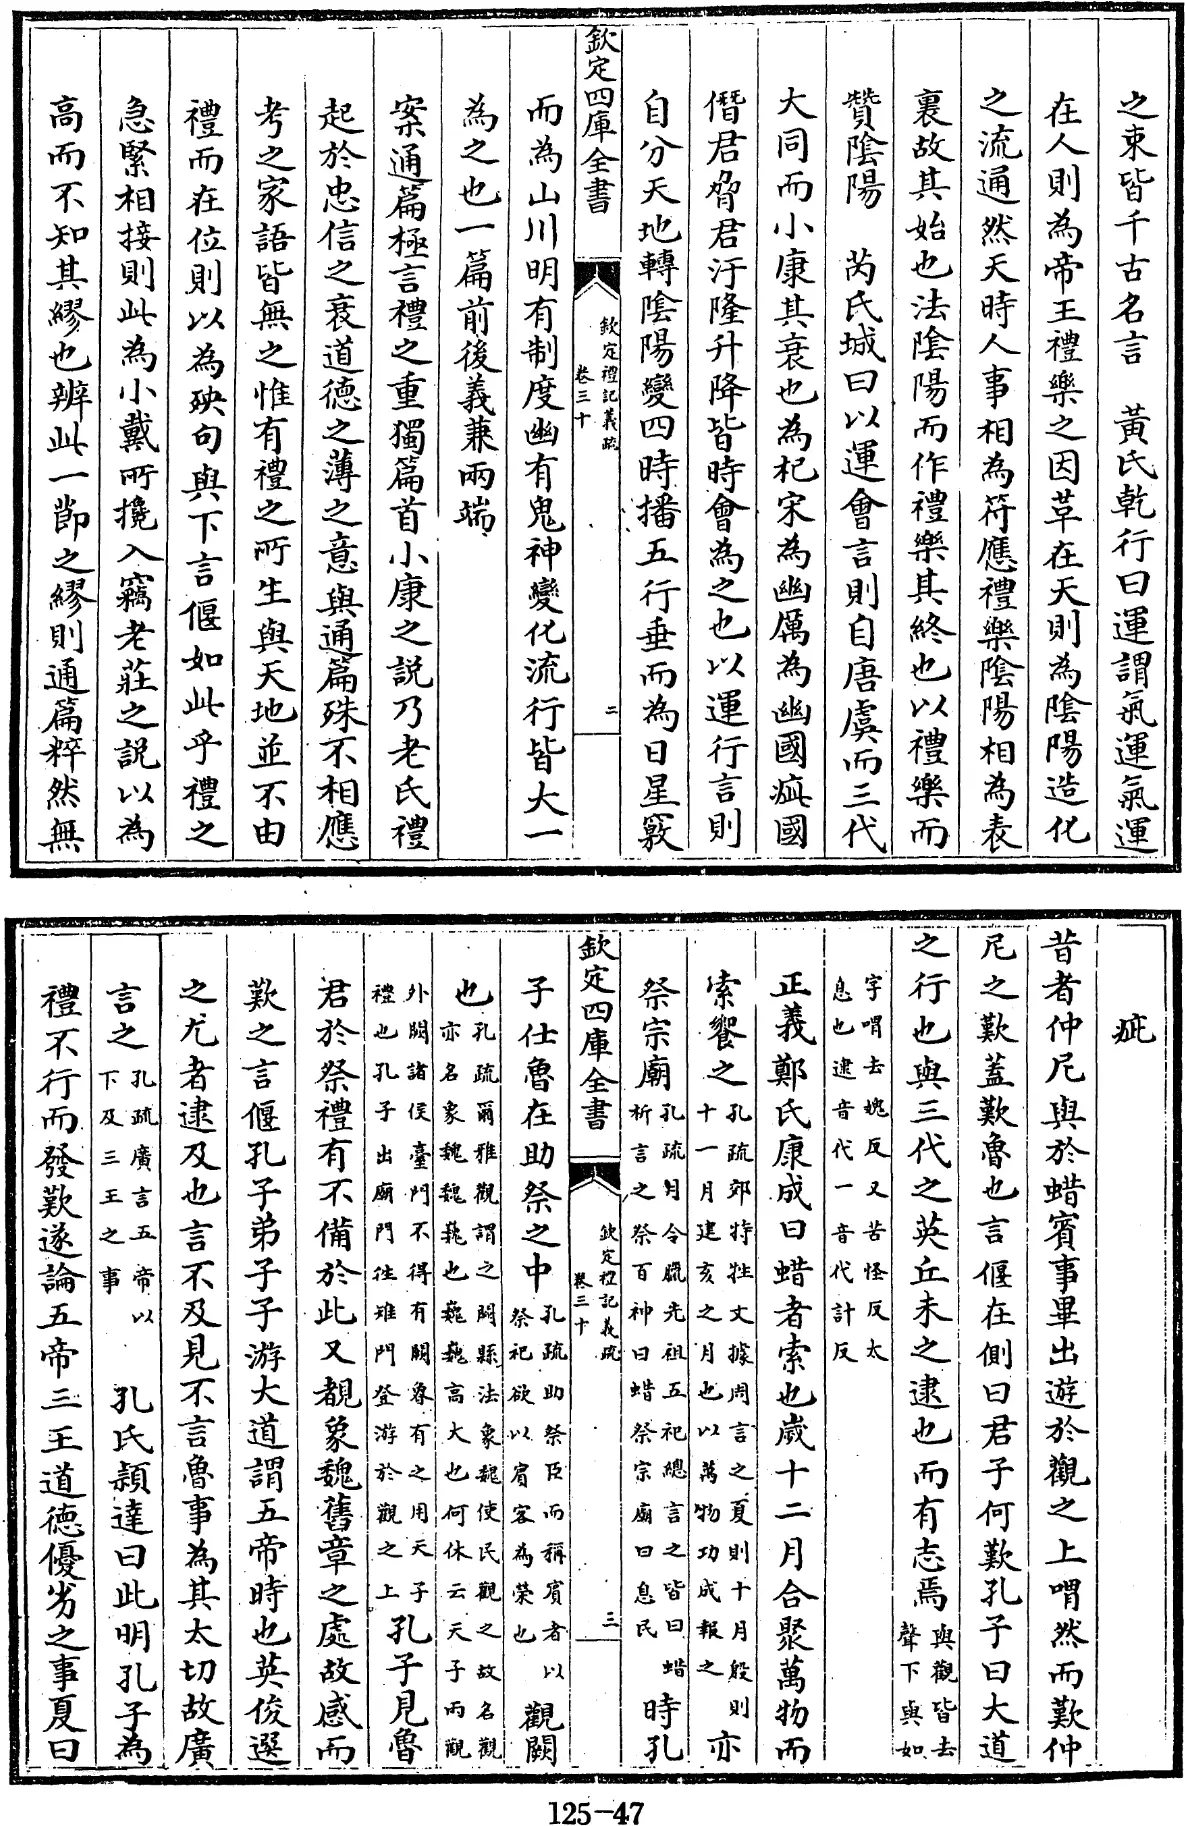 之柬皆千古名言　黃氏乾行曰運謂氣運氣運
在人則為帝王禮樂之因革在天則為陰陽造化
之流通然天時人事相為符應禮樂陰陽相為表
裏故其始也法陰陽而作禮樂其終也以禮樂而
贊陰陽　芮氏城曰以運會言則自唐虞而三代
大同而小康其衰也為杞宋為幽厲為幽國疵國
僭君脅君汙隆升降皆時會為之也以運行言則
自分天地轉陰陽變四時播五行垂而為日星竅
欽定四庫全書
欽定禮記義疏
卷三十
二
而為山川明有制度幽有鬼神變化流行皆大一
為之也一篇前後義兼兩端
案通篇極言禮之重獨篇首小康之説乃老氏禮
起於忠信之衰道德之薄之意與通篇殊不相應
考之家語皆無之惟有禮之所生與天地並不由
禮而在位則以為殃句與下言偃如此乎禮之
急緊相接則此為小戴所攙入竊老莊之説以為
高而不知其繆也辨此一節之繆則通篇粹然無
疵
昔者仲尼與於蜡賓事畢出遊於觀之上喟然而歎仲
尼之歎蓋歎魯也言偃在側曰君子何歎孔子曰大道
之行也與三代之英丘未之逮也而有志焉與觀皆去
聲下與如
字喟去媿反又苦怪反太
息也逮音代一音代計反
正義鄭氏康成曰蜡者索也歲十二月合聚萬物而
索饗之孔疏郊特牲文據周言之夏則十月殷則
十一月建亥之月也以萬物功成報之亦
祭宗廟孔疏月令臘先祖五祀總言之皆曰蜡
析言之祭百神曰蜡祭宗廟曰息民時孔
欽定四庫全書
欽定禮記義疏
卷三十
三
子仕魯在助祭之中孔疏助祭臣而稱賓者以
祭祀欲以賓客為榮也觀闕
也孔疏爾雅觀謂之闕縣法象魏使民觀之故名觀
亦名象魏魏巍也巍巍高大也何休云天子兩觀
外闕諸侯臺門不得有闕魯有之用天子
禮也孔子出廟門往雉門登游於觀之上孔子見魯
君於祭禮有不備於此又覩象魏舊章之處故感而
歎之言偃孔子弟子子游大道謂五帝時也英俊選
之尤者逮及也言不及見不言魯事為其太切故廣
言之孔疏廣言五帝以
下及三王之事　孔氏穎達曰此明孔子為
禮不行而發歎遂論五帝三王道德優劣之事夏曰
125-47